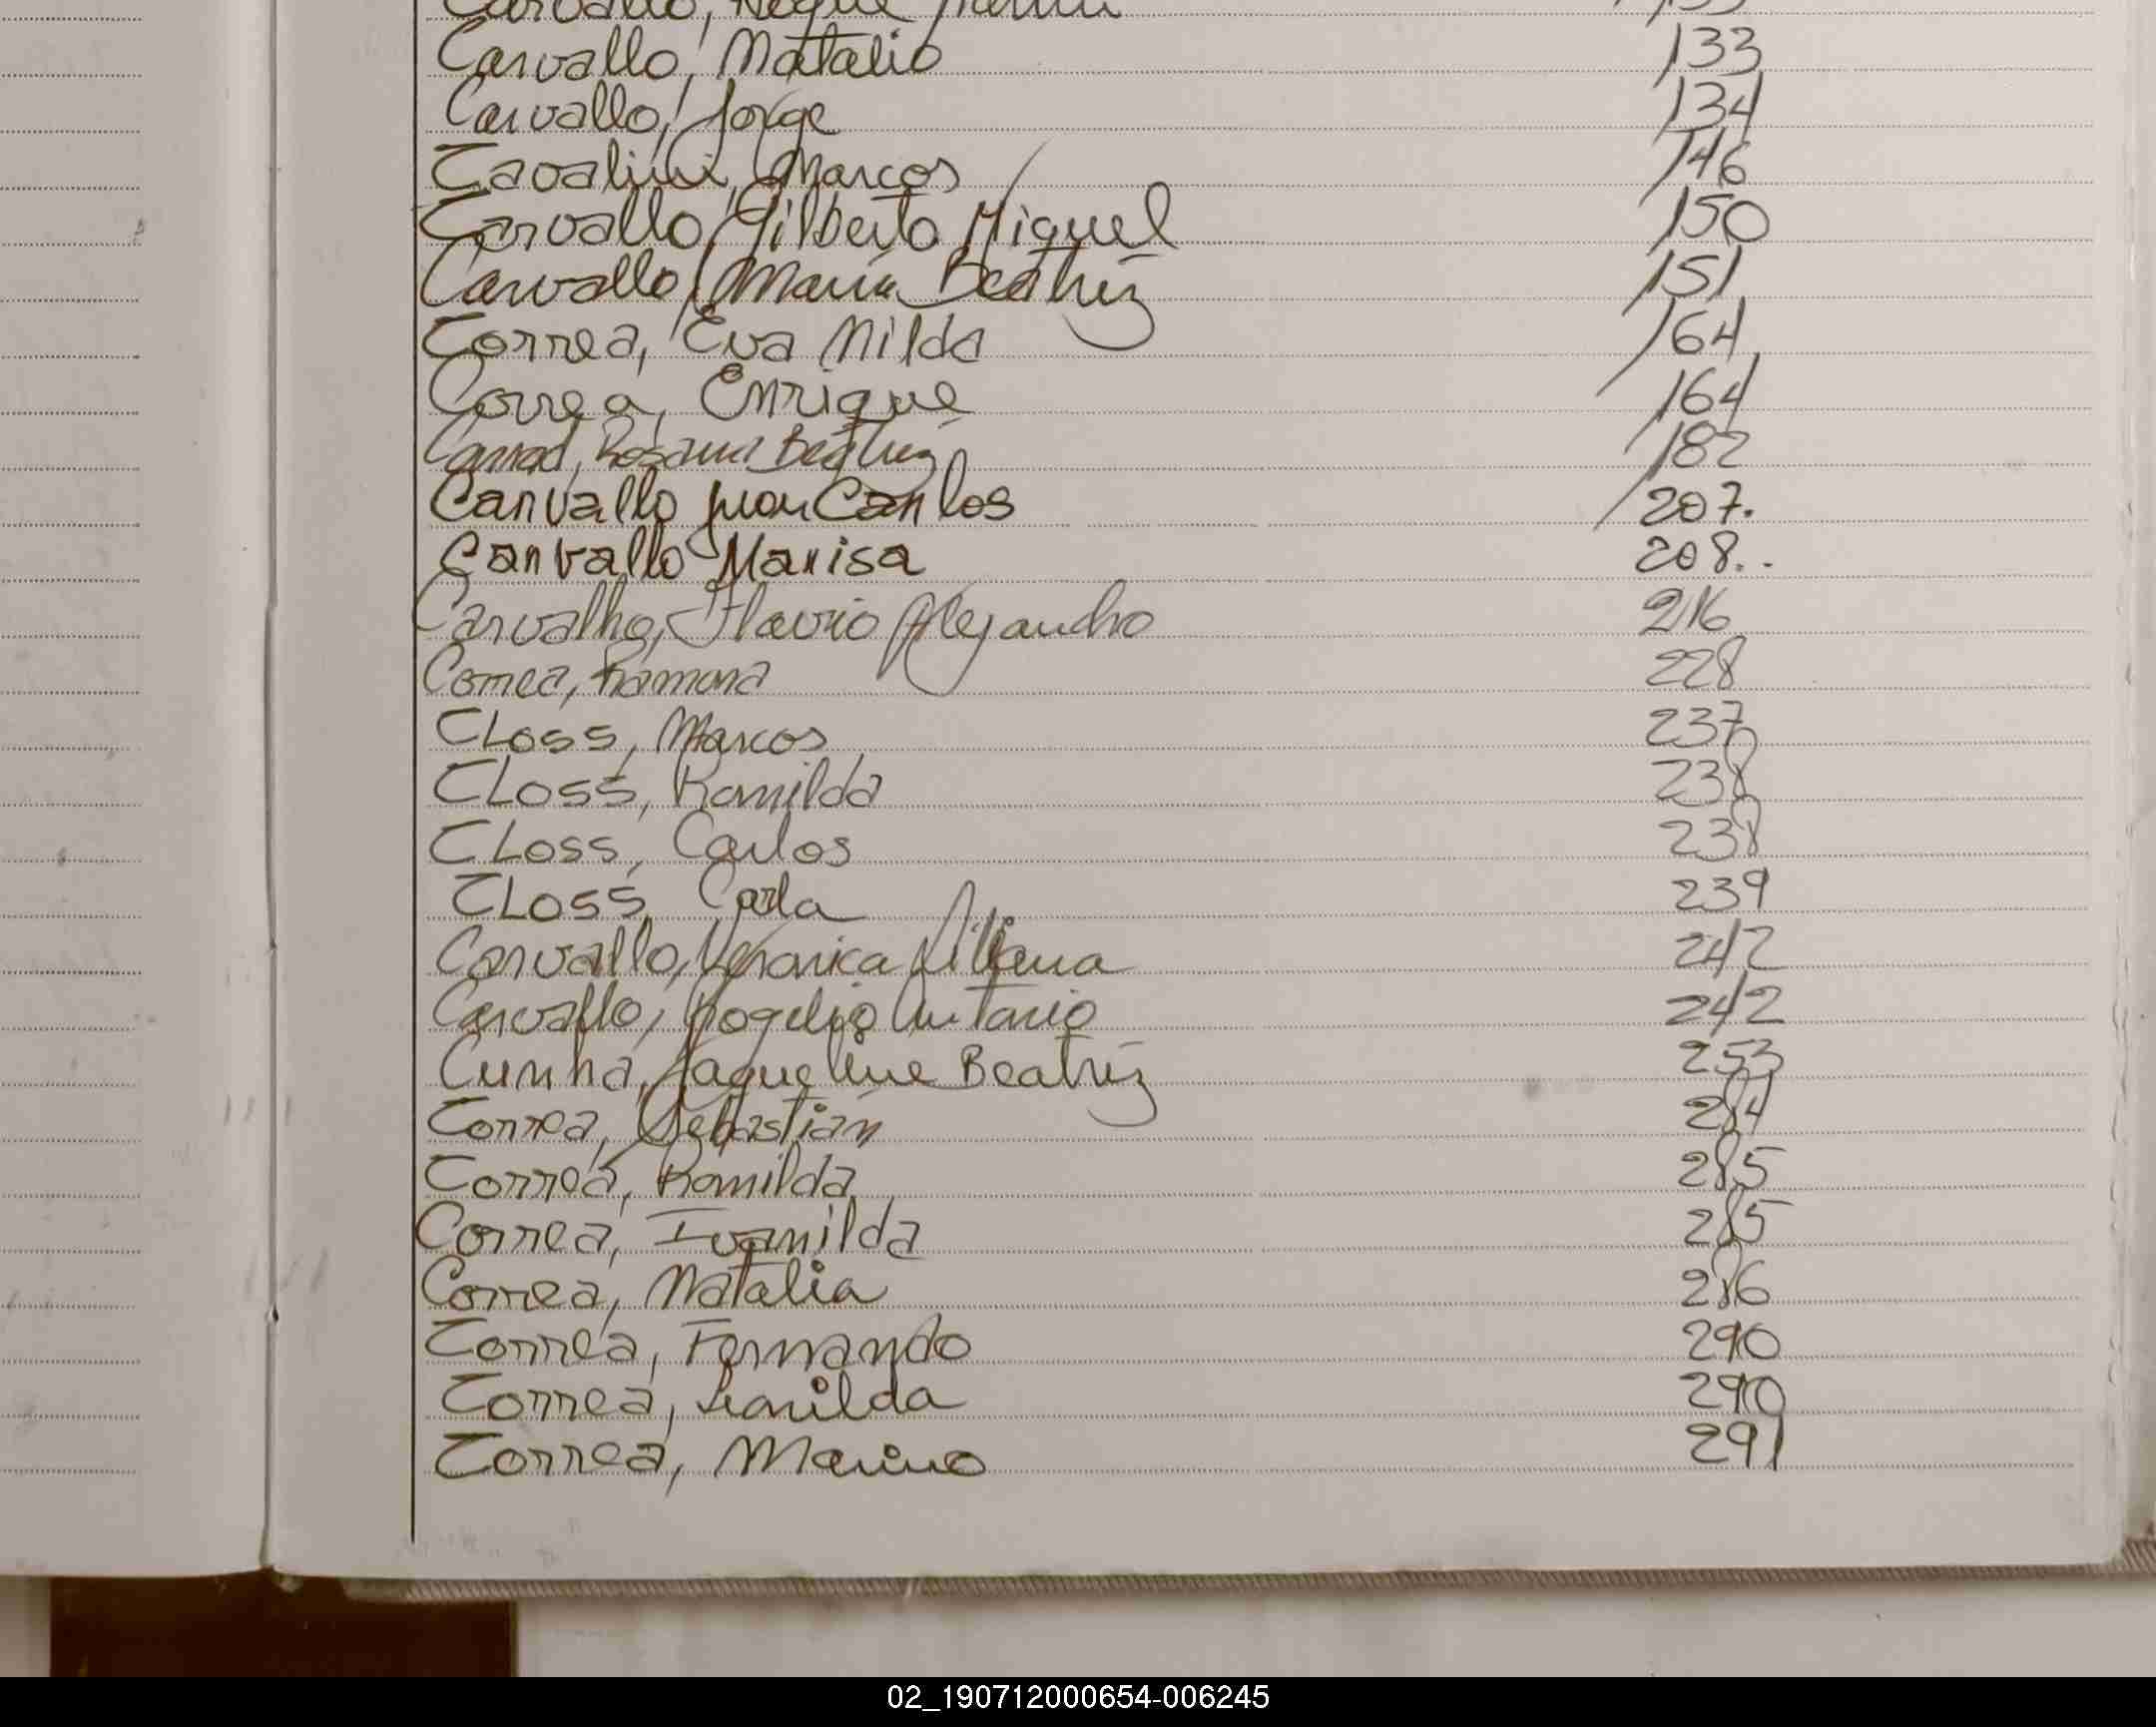 Carvallo, Roque Martin 133
Carvallo, Natalio 133
Carvallo, Jorge 134
Cavalini, Marcos 146
Carvallo, Gilberto Miguel 150
Carvallo, María Beatriz 151
Correa, Eva Nilda 164
Correa, Enrique 164
Rosana Beatriz 182
Carvallo Juan Carlos 207.
Carvallo Marisa 208..
Carvalho, Flavio Alejandro 216
Correa, Ramona 228
CLoss, Marcos 237
CLoss, Romilda 238
CLoss, Carlos 238
CLoss, Carla 239
Carvallo, Veronica Liliana 242
Carvallo, Rogelio Antonio 242
Cunha, Jaqueline Beatriz 253
Correa, Sebastián 284
Correa, Romilda 285
Correa, Ivanilda 285
Correa, Natalia 286
Correa, Fernando 290
Correa, 290
Correa, Marino 291
02_190712000654-006245